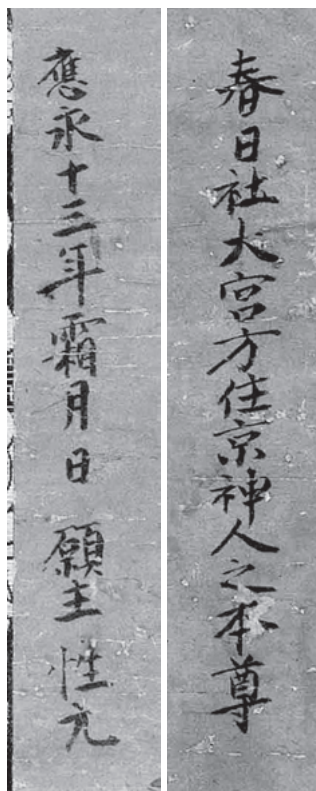 春日社大宮方住京神人之本尊
應永十三年霜月日　願主　性元